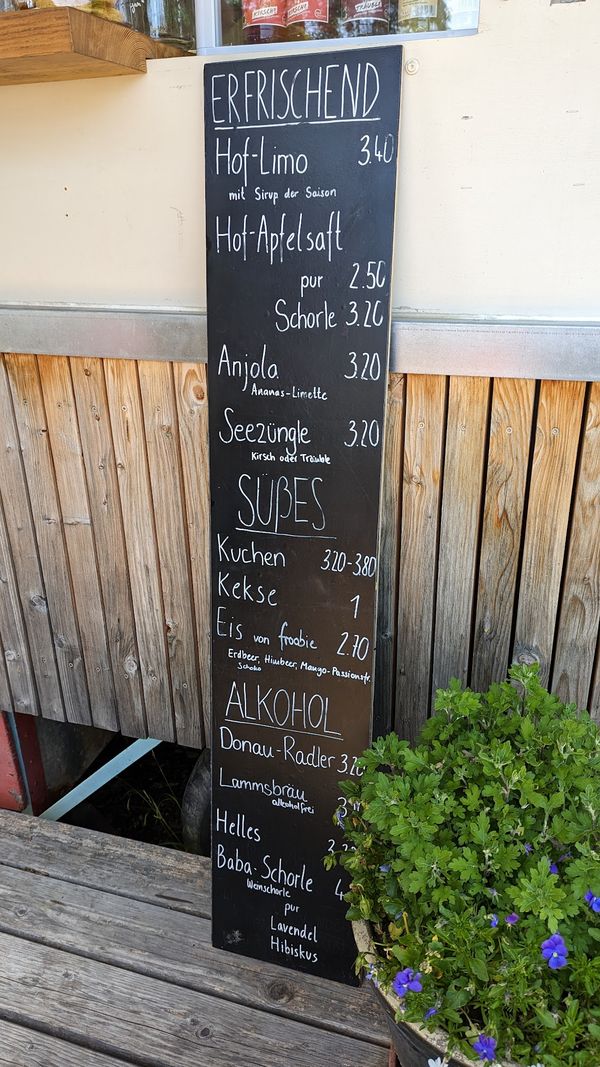 ERFRISCHEND
Hof-Limo 3.40
mit Sirup der Saison
Hof-Apfelsaft
pur 2.50
Schorle 3.20
Anjola 3.20
Ananas-Limette
Seezüngle 3.20
Kirsch oder Träuble
SÜßES
Kuchen 3.20-3.80
Kekse 1
Eis von froobie 2.70
Erdbeer, Himbeer, Mango-Passionsfr.
Schoko
ALKOHOL
Donau-Radler 3.20
Lammsbräu
alkoholfrei
Helles
Baba-Schorle
Weinschorle
pur
Lavendel
Hibiskus